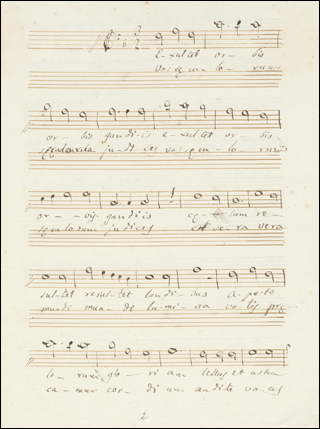 E-xultet or- bis
Vos sequ- lo- rum
or- bis gaudi-is e-xultet or- bis
ju-di ces vos sequ- lo- rum
or- -vis- gaudiis cę- lum re-
seculorum judices et ve-ra vera
sultet resul-tet laudi-bus a-posto
mundi mun-di lu-mi-na votis pre
lo- rum glo- ri am tellus et astra
ca-mur cor- di um audite voces
2